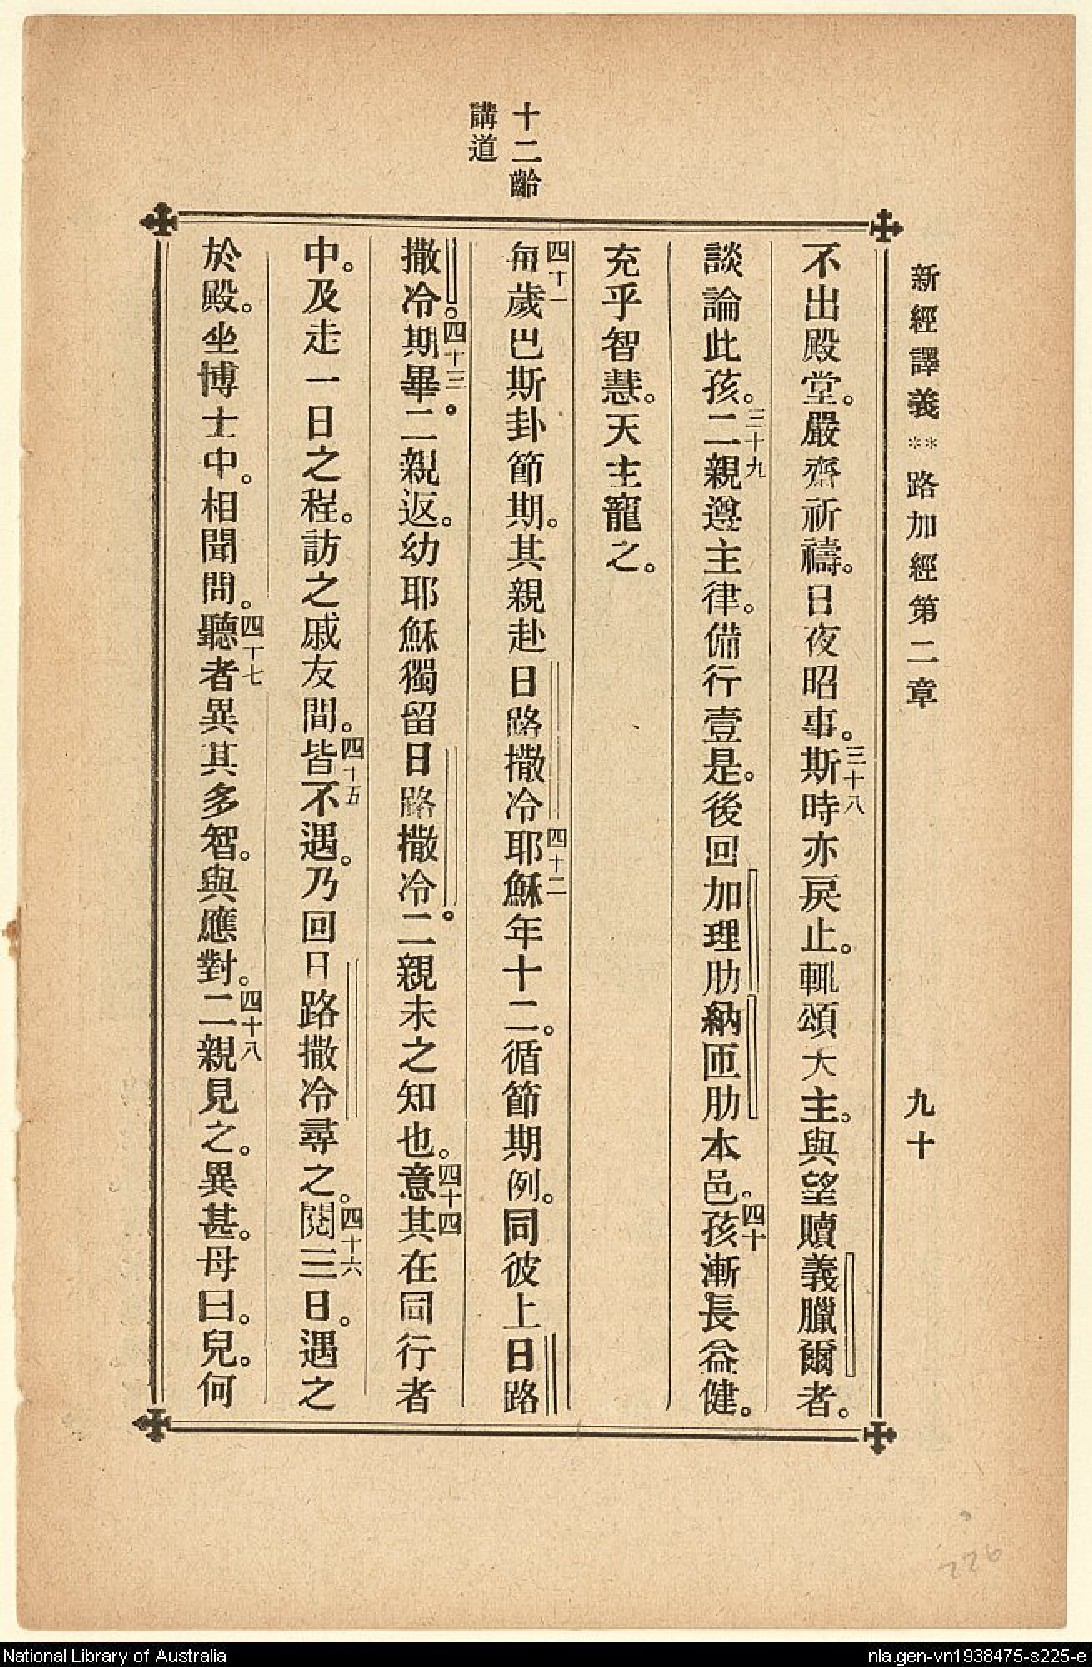 新經譯義**路加經第二章 九十
十二齡
講道
不出殿堂。嚴齋祈禱。日夜昭事。三十八斯時亦戾止。輒頌大主。與望贖義臘爾者。
談論此孩。三十九二親遵主律。備行壹是。後回加理肋納匝肋本邑。四十孩漸長益健。
充乎智慧。天主寵之。
四十一每歲巴斯卦節期。其親赴日路撒冷四十二耶穌年十二。循節期例。同彼上日路
撒冷。四十三期畢。二親返。幼耶穌獨留日路撒冷。二親未之知也。四十四意其在同行者
中。及走一日之程。訪之戚友間。四十五皆不遇。乃回日路撒冷尋之。四十六閱三日。遇之
於殿。坐博士中。相聞問。四十七聽者異其多智。與應對。四十八二親見之。異甚。母曰。兒。何
226
National Library of Australia
nla.gen-vn1938475-s225-e